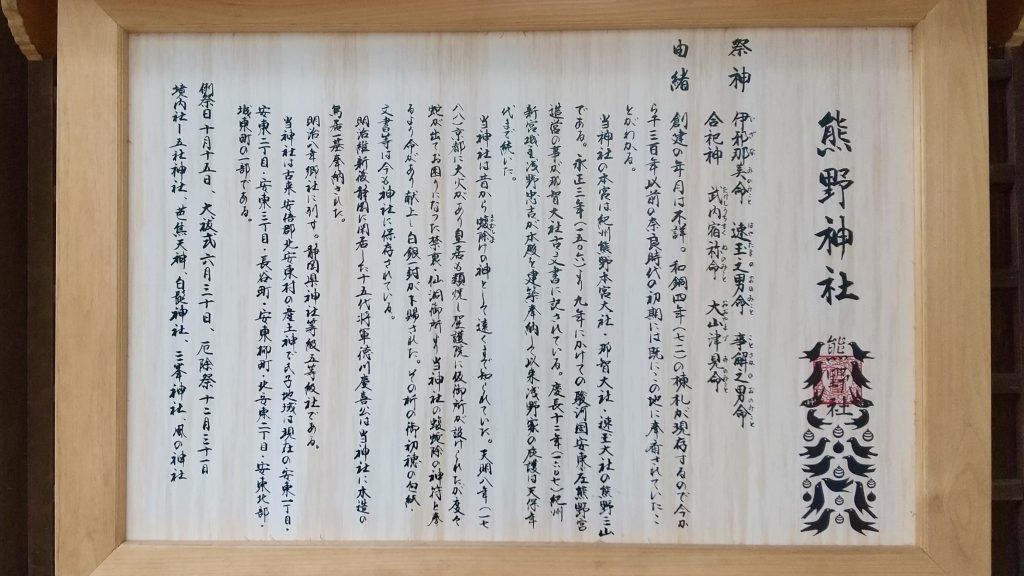 熊野神社
熊野神社
祭神 伊邪那美命 速玉之男命 事解之男命
合祀神 武内宿祢命 大山津見命
由緒 創建の年月は不詳。和銅四年(七一一)の棟札が現存するので今か
ら千三百年以前の奈良時代の初期には既にこの地に奉斎されていたこ
とがわかる。
当神社の本宮は紀州熊野本宮大社・那智大社・速玉大社の熊野三山
である。永正三年(一五〇六)より九年にかけての駿河国安東庄熊野宮
造営の事が那智大社古文書に記されている。慶長十二年(一六〇七)紀州
新宮城主浅野忠吉が本殿を建築奉納して以来浅野家の庇護は天保年
代まで続いた。
当神社は昔から蝮除けの神として遠くまで知られていた。天明八年(一七
八八)京都に大火があり皇居も類焼し聖護院に仮御所が設けられたが度々
蛇が出てお困りになった禁裏・仙洞御所より当神社の蝮蛇除の神符を奉
るよう命があり献上し白銀一封が下賜された。その折の御初穂の包紙
文書等は今も神社に保存されている。
明治維新後静岡に閑居した十五代将軍徳川慶喜公は当神社に木造の
鳥居一基奉納された。
明治八年郷社に列す。静岡県神社等級五等級社である。
当神社は古来安倍郡北安東村の産土神で氏子地域は現在の安東一丁目・
安東二丁目・安東三丁目・長谷町・安東柳町・北安東二丁目・安東北部・
城東町の一部である。
例祭日 十月十五日、大祓式 六月三十日、厄除祭 十二月三十一日
境内社 五社神社、若集天神、白髭神社、三峯神社、風の神社